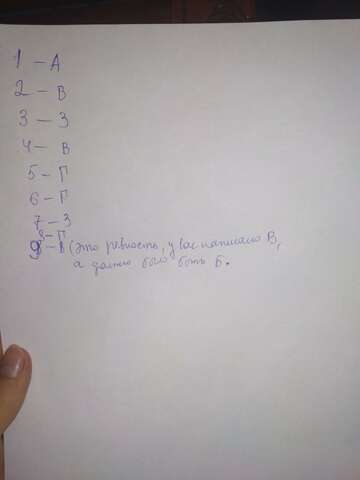 1 – А
2 – В
3 – З
4 – В
5 – Г
6 – Г
7 – З
8 – Г
9 – В (это ревность, у вас написано В,
а должно было быть Б.